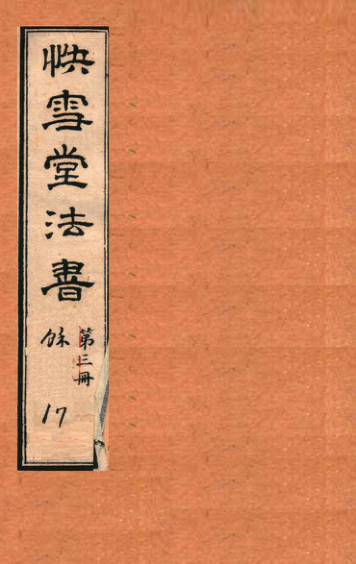 快雪堂法書
餘
第三冊
17